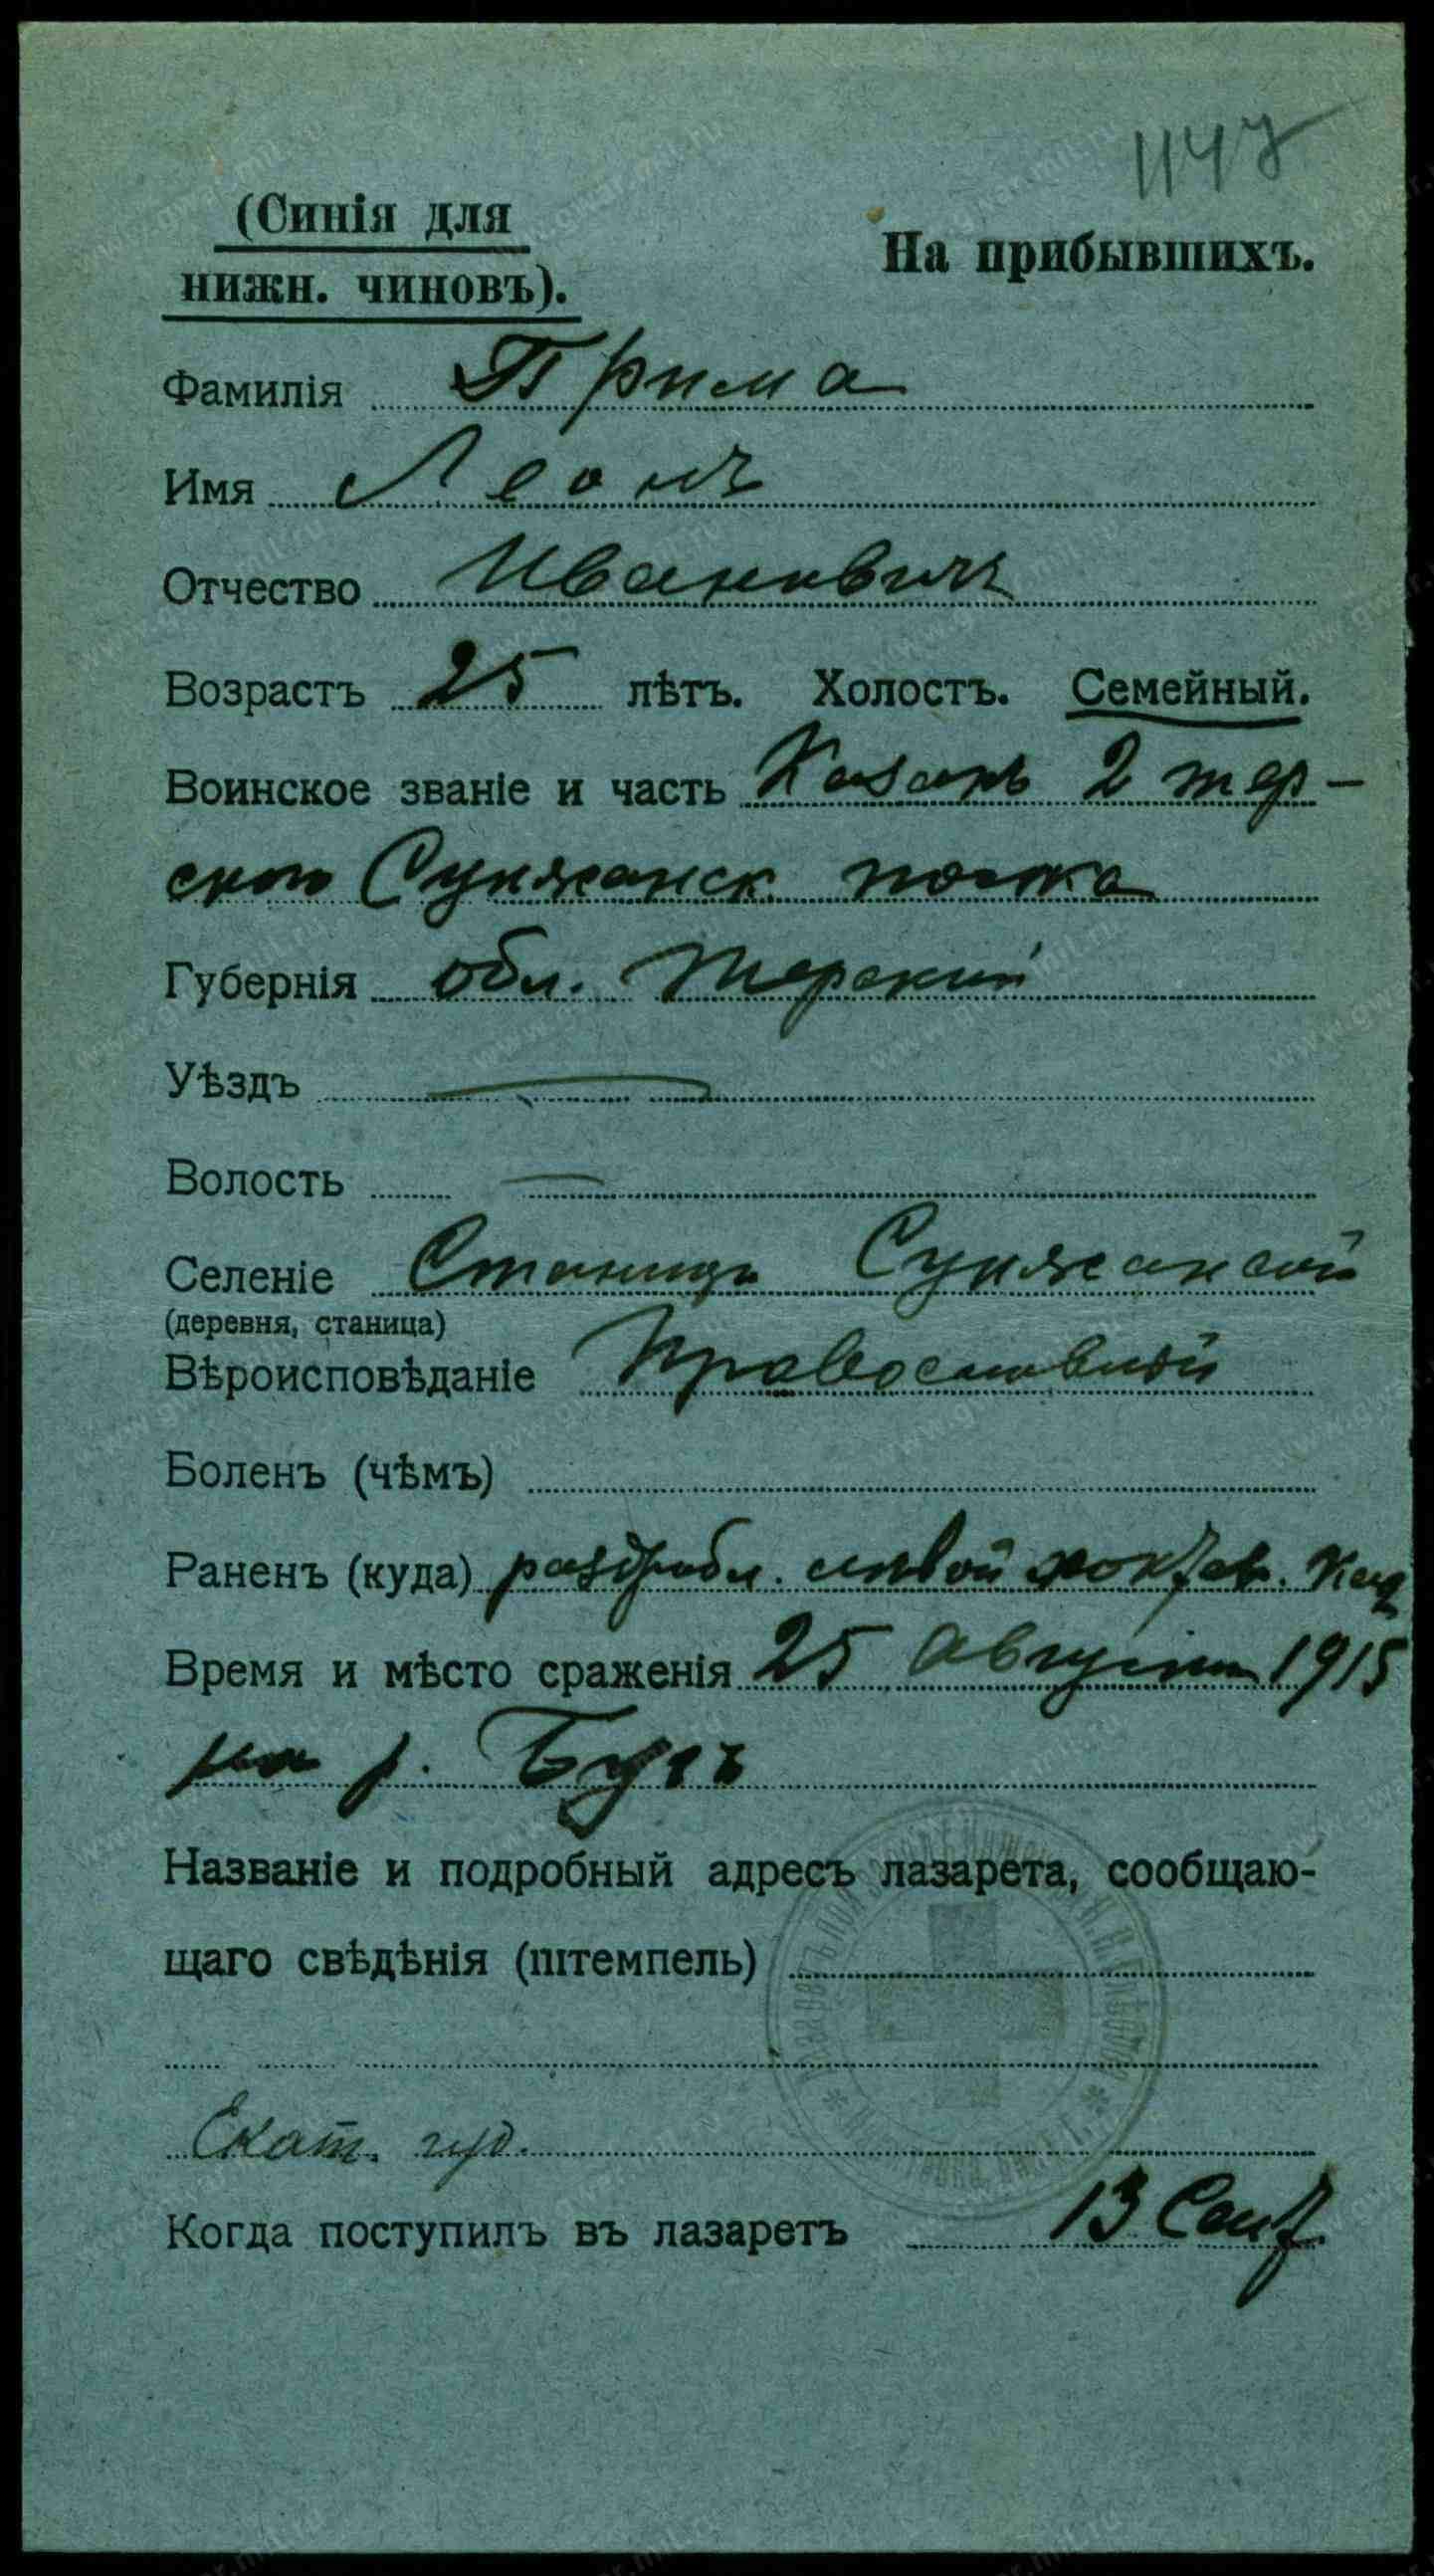 1147
(Синія для
нижн. чиновъ).
На прибывшихъ.
Фамилія Прима
Имя Леонъ
Отчество Ивановичъ
Возрастъ 25 лѣтъ. Холостъ. Семейный.
Воинское званіе и часть Казакъ 2 тер-
ского Сунжанск. полка
Губернія обл. Терский
Уѣздъ —
Волость —
Селеніе Станица Сунжанской
(деревня, станица)
Вѣроисповѣданіе Православный
Боленъ (чѣмъ)
Раненъ (куда) раздробл. лѣвой локтев. кос
Время и мѣсто сраженія 25 августа 1915
на р. Бугъ
Названіе и подробный адресъ лазарета, сообщаю-
щаго свѣдѣнія (штемпель)
Екат. гub.
Когда поступилъ въ лазаретъ 13 Сент.
www.gwar.mil.ru